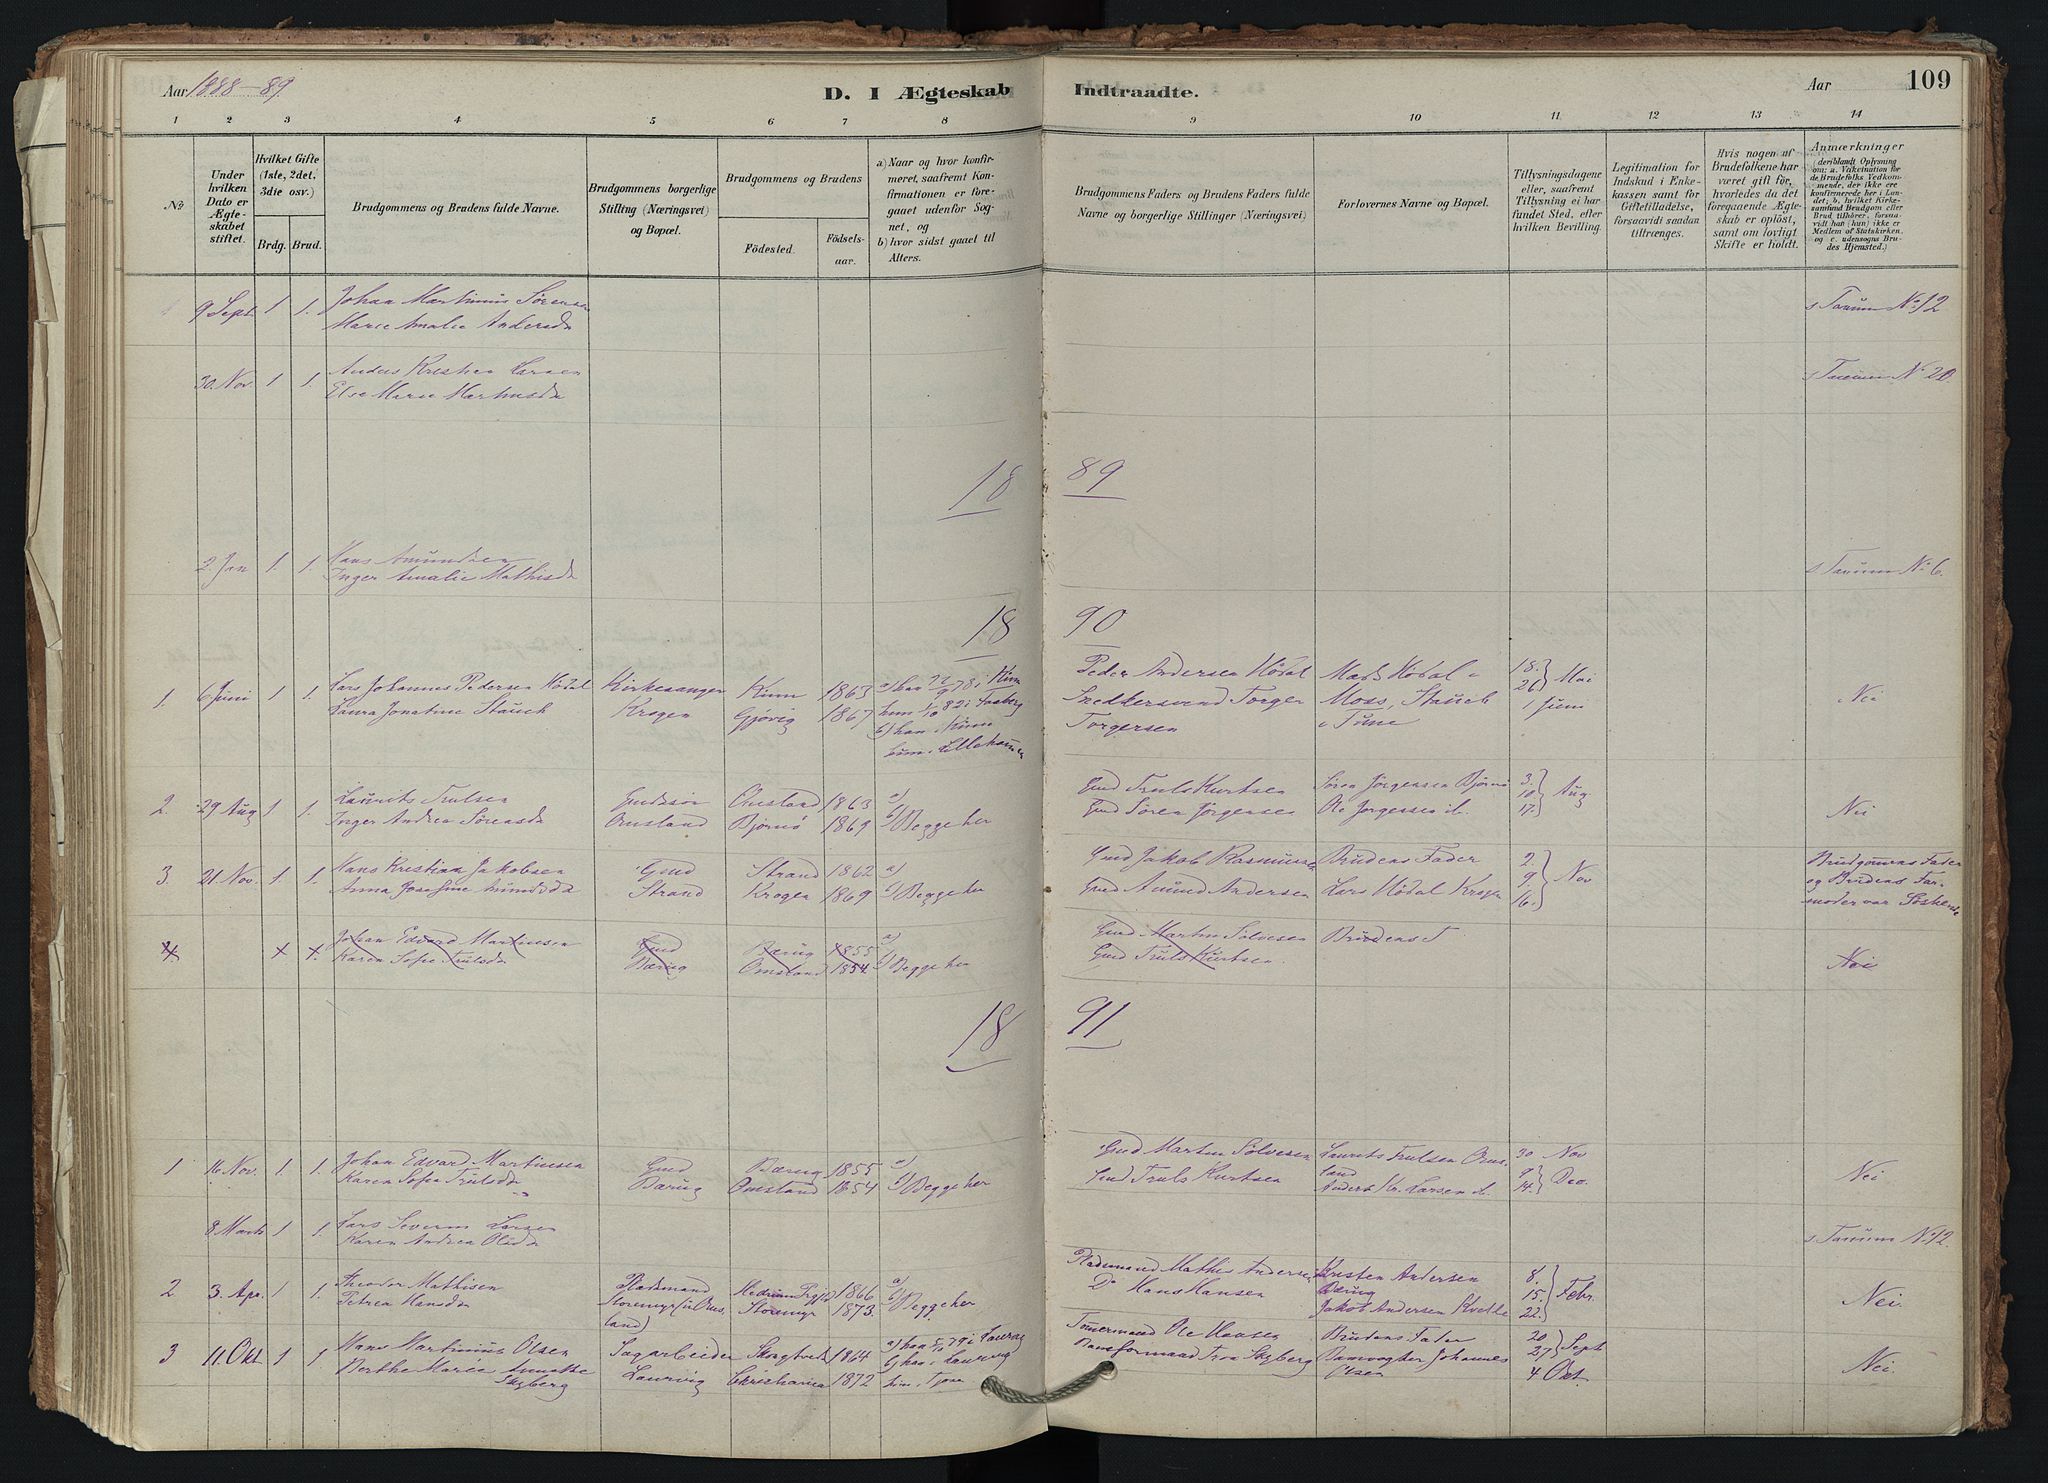 Aar 1888-89.
D. I Ægteskab Indtraadte.
Aar 109
1 2 3 4 5 6 7 8 9 10 11 12 13 14
No
Under hvilken Dato er Ægteskabet stiftet.
Hvilket Gifte (1ste, 2det, 3die osv.)
Brdg. Brud.
Brudgommens og Brudens fulde Navne.
Brudgommens borgerlige Stilling (Næringsvei) og Bopæl.
Brudgommens og Brudens
Födested. Födsels-aar.
a) Naar og hvor konfirmeret, saafremt Konfirmationen er foregaaet udenfor Sognet, og
b) hvor sidst gaaet til Alters.
Brudgommens Faders og Brudens Faders fulde Navne og borgerlige Stillinger (Næringsvei)
Forlovernes Navne og Bopæl.
Tillysningsdagene eller, saafremt Tillysning ei har fundet Sted, efter hvilken Bevilling.
Legitimation for Indskud i Enkekassen samt for Giftetilladelse, forsaavidt saadan tiltrænges.
Hvis nogen af Brudefolkene har været gift før, hvorledes da det foregaaende Ægteskab er oplöst, samt om lovligt Skifte er holdt.
Anmærkninger (deriblandt Oplysning om: a. Vakcination for de Brudefolks Vedkommende, der ikke ere konfirmerede her i Landet; b. hvilket Kirkesamfund Brudgom eller Brud tilhörer, forsaavidt han (hun) ikke er Medlem af Statskirken, og c. udensogns Brudes Hjemsted.)
9 Sept 1 1. Johan Martinius Sørensen s. Tanum No 12
Marie Amalie Andersdr
30. Nov. 1 1. Anders Kristian Larsen s. Tanum No 20.
Else Marie Martinsdr
18 89
2. Jan 1. 1. Hans Amundsen s. Tanum No 6.
Inger Amalie Mathisdr
18 90
1. 6 Juni 1 1. Lars Johannes Pedersen Hødal Kirkesanger 1863 Peder Andersen Hødal 18. Mai
Laura Jonatine Stauch Krogen Gjøvig 1867 26
Torgersen Moss, Stauch 1 Juni Nei
i Tune
2. 29 Aug 1 1. Laurits Trulsen Gaardssøn Omsland 1863 a) Gmd Truls Kurtsen Søren Jørgensen Bjørnø 3. Aug
Inger Andrea Sørensdr Omsland Bjørnø 1869 b) Begge her Gmd Søren Jørgensen Ole Jørgensen 10. 17. Nei
3. 21 Nov. 1. 1. Hans Kristian Jakobsen Gmd Strand 1862 a) Gmd Jakob Rasmussen Brudens Fader 2. Nov Brudgomens Fader
Anna Josefine Amundsdr Strand Krogen 1869 b) Begge her Gmd Amund Andersen Lars Hødal Krogen 9 16. og Brudens Farmoder var Søskende
4. 1. 1. Johan Edvard Martinsen Gmd Bærug 1855 a) Gmd Martin Sølvesen Brudens F
Karen Sofie Trulsdr Bærug Omsland 1854 b) Begge her Gmd Truls Kurtsen. Nei
18 91
1 16 Nov. 1. 1. Johan Edvard Martinsen Gmd Bærug 1855 a) Gmd Martin Sølvesen Laurits Trulsen Omsland 30 Nov
Karen Sofie Trulsdr Bærug Omsland 1854 b) Begge her Gmd Truls Kurtsen Anders Kr. Larsen 9 14. Dec. Nei
8 Marts 1 1. Lars Severin Larsen s. Tanum No 12.
Karen Andrea Olsdr
2 3. Apr. 1 1. Theodor Mathisen Pladsmand 1866 a) Pladsmand Mathis Andersen Kristen Andersen Bærug 8. Febr.
Petrea Hansdr Storemyr (u. Omsland) Storemyr 1873. b) Begge her Do Hans Hansen Jakob Andersen Kvelle 15. 22. Nei.
3 11. Okt 1 1 Hans Martinius Olsen Sagarbeider 1864 a) han 5/10 79 i Laurvig Tømermand Ole Hansen Brudens Fader 20 Sept
Berthe Marie Annette Skyberg Laurvig Christiania 1872 b) han i Laurvig Johannes Olsen 27 4 Okt. Nei.